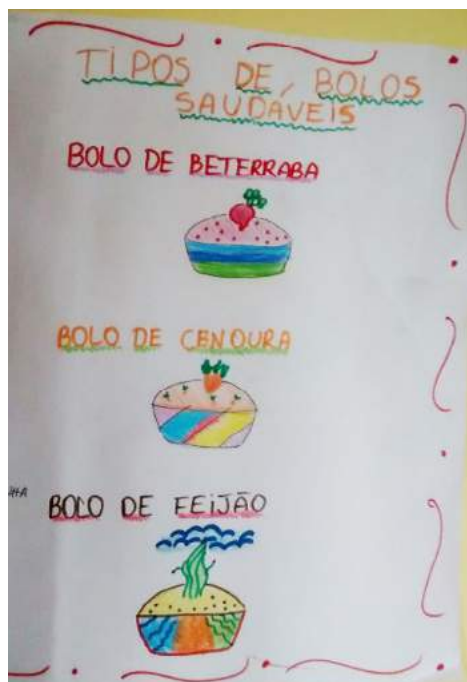 TIPOS DE BOLOS
SAUDÁVEIS
BOLO DE BETERRABA
BOLO DE CENOURA
BOLO DE FEIJÃO